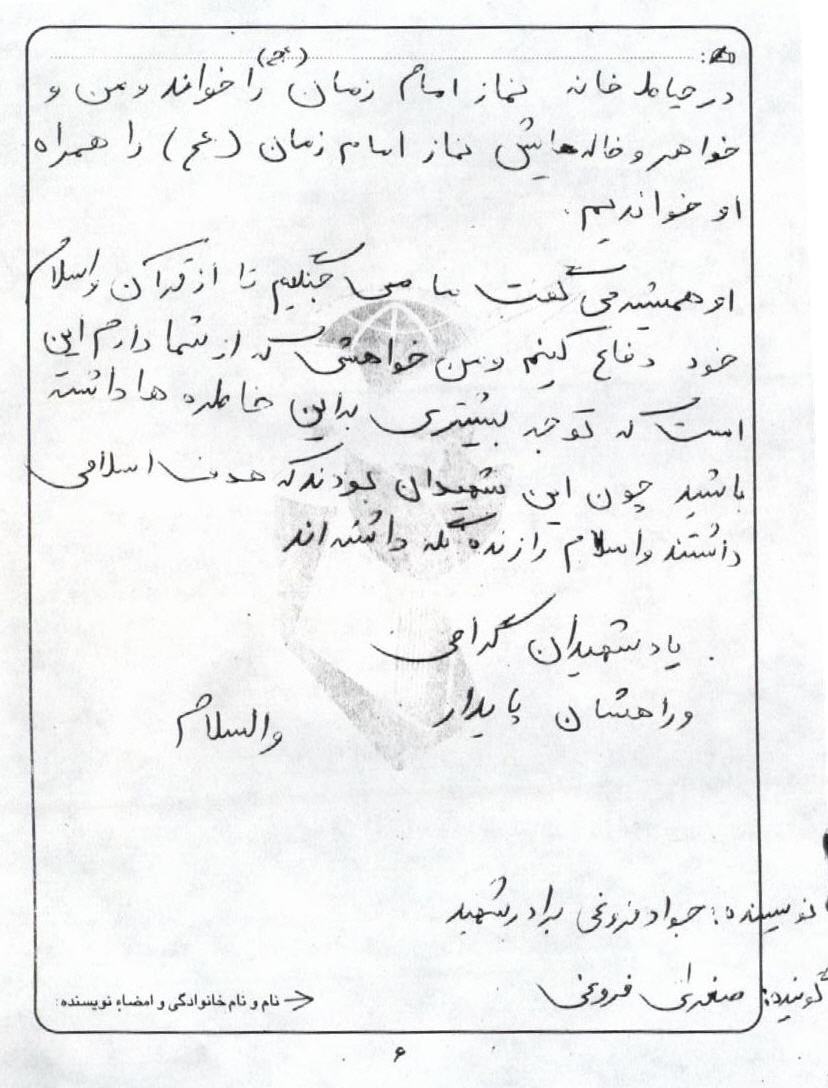 در حیاط خانه نماز امام زمان (عج) را خواند و من و
خواهر و خاله هایش نماز امام زمان (عج) را همراه
او خواندیم.
او همیشه می گفت ما می جنگیم تا از قرآن و اسلام
خود دفاع کنیم و من خواهشی که از شما دارم این
است که توجه بیشتری به این خاطره ها داشته
باشید چون این شهیدان بودند که هدف اسلامی
داشتند و اسلام را زنده نگه داشته اند
یاد شهیدان گرامی
و راهشان پایدار
والسلام
نویسنده: جواد فروغی برادر شهید
گوینده: صغری فروغی
نام و نام خانوادگی و امضاء نویسنده:
۶